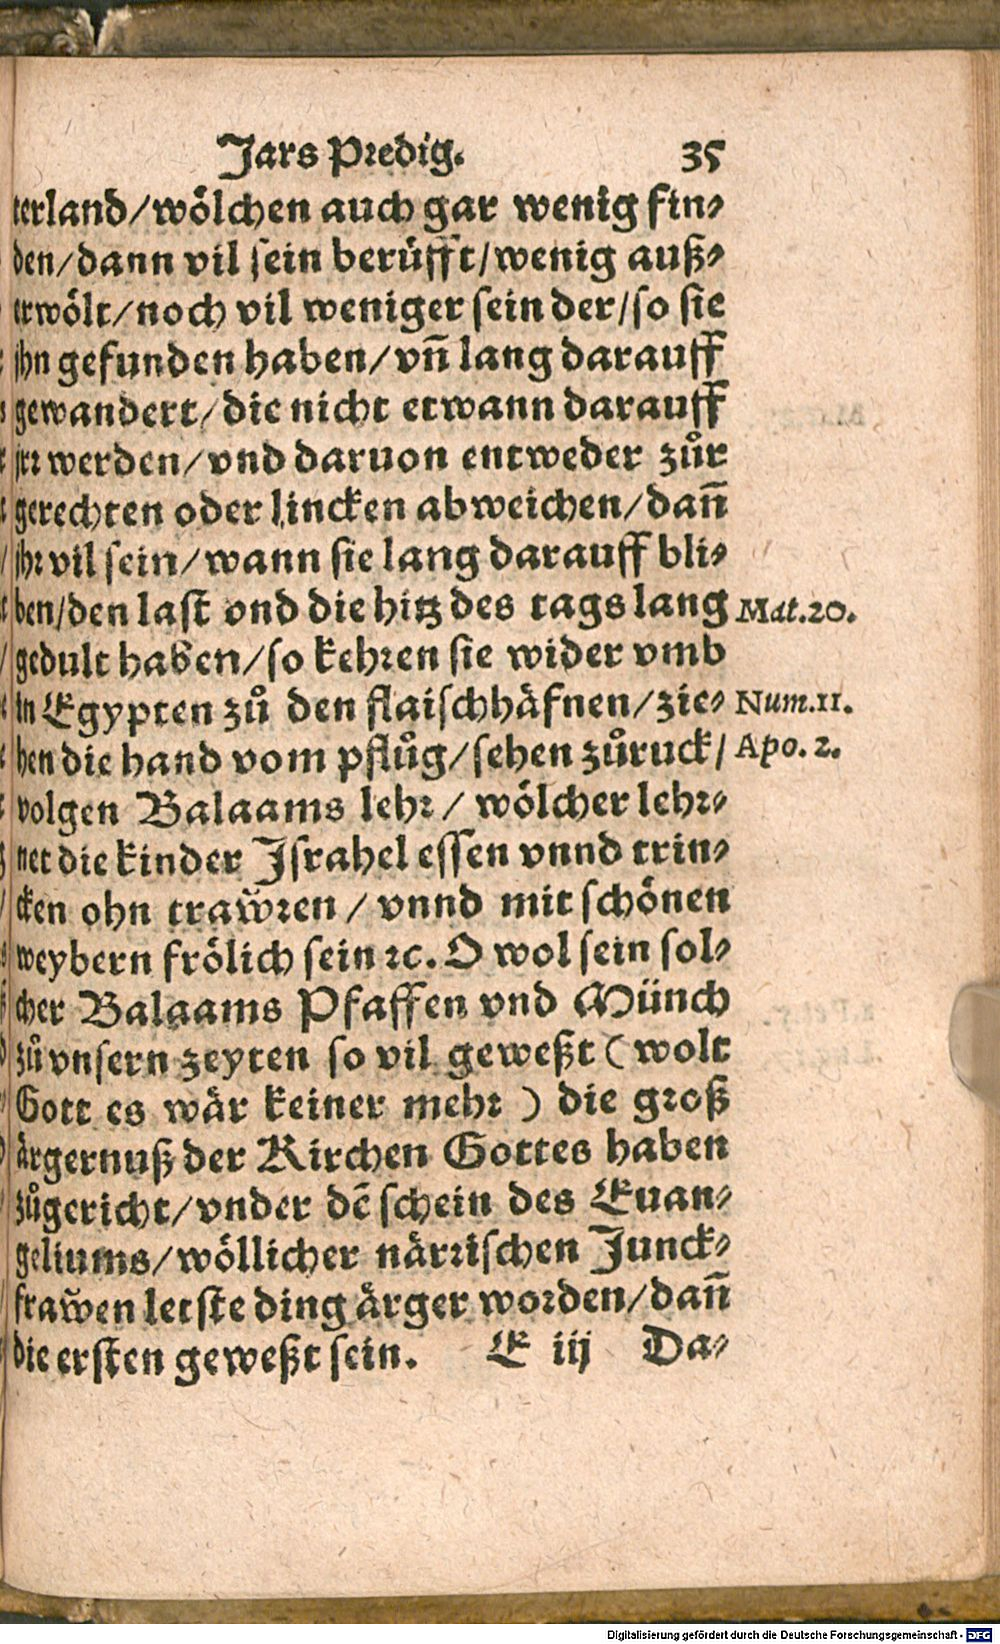 Jars Predig. 35
terland/wölchen auch gar wenig fin⸗
den/dann vil sein berüfft/wenig auß⸗
erwölt/noch vil weniger sein der/so sie
jhn gefunden haben/vñ lang darauff
gewandert/die nicht etwann darauff
jrr werden/vnd daruon entweder zůr
gerechten oder lincken abweichen/dañ
jhr vil sein/wann sie lang darauff bli⸗
ben/den last vnd die hitz des tags lang Mat.20.
gedult haben/so kehren sie wider vmb
in Egypten zů den flaischhäfnen/zie⸗ Num.11.
hen die hand vom pflůg/sehen zůruck/ Apo. 2.
volgen Balaams lehr/ wölcher lehr⸗
net die kinder Jsrahel essen vnnd trin⸗
cken ohn trawren / vnnd mit schönen
weybern frölich sein ꝛc. O wol sein sol⸗
cher Balaams Pfaffen vnd Münch
zů vnsern zeyten so vil geweßt ( wolt
Gott es wär keiner mehr ) die groß
ärgernuß der Kirchen Gottes haben
zůgericht/vnder dẽ schein des Euan⸗
geliums/wöllicher närrischen Junck⸗
frawen letste ding ärger worden/dañ
die ersten geweßt sein. E iij Da⸗
Digitalisierung gefördert durch die Deutsche Forschungsgemeinschaft - DFG